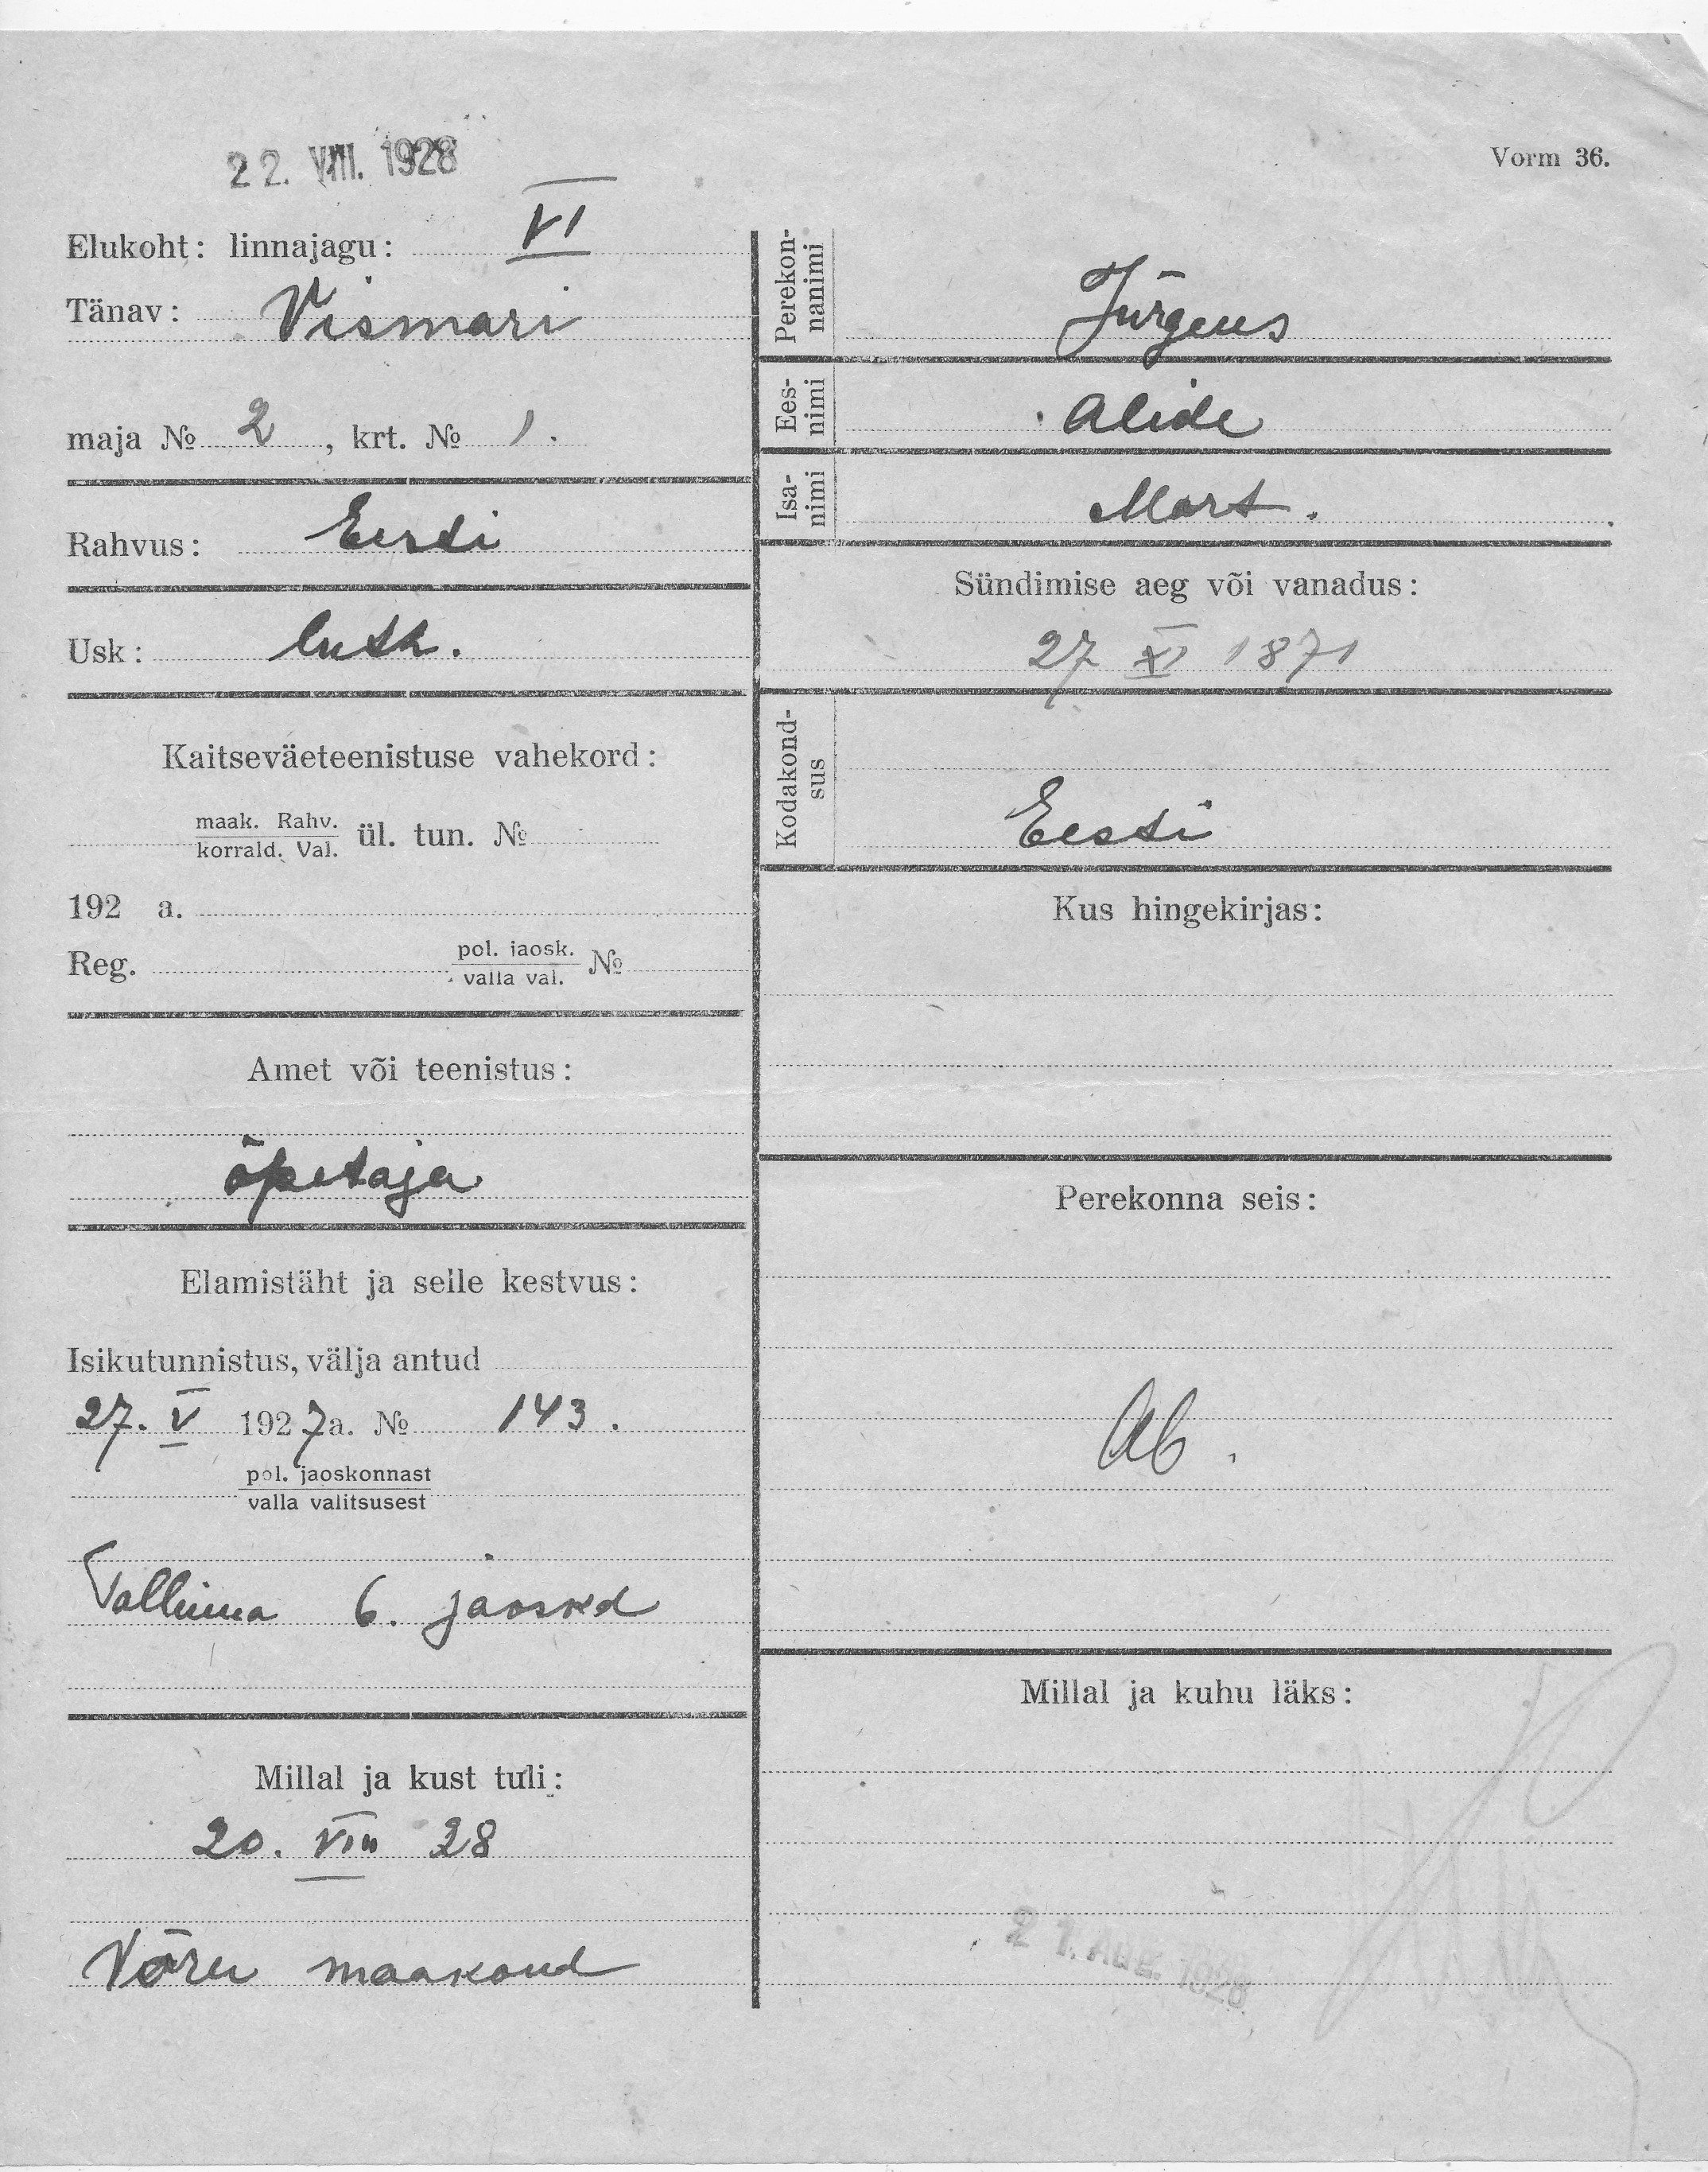 22. VIII. 1928
Vorm 36.
Elukoht: linnajagu: VI
Tänav: Vismari
maja № 2, krt. № 1.
Rahvus: Eesti
Usk: luth.
Kaitseväeteenistuse vahekord:
maak. Rahv.
korrald. Val. ül. tun. №
192 a.
Reg. pol. jaosk.
valla val. №
Amet või teenistus:
õpetaja
Elamistäht ja selle kestvus:
Isikutunnistus, välja antud
27. V 1927 a. № 143.
pol. jaoskonnast
valla valitsusest
Tallinna 6. jaoskd
Millal ja kust tuli:
20. VIII 28
Võru maakond
Perekon-
nanimi Jürgens
Ees-
nimi Alide
Isa-
nimi Mart.
Sündimise aeg või vanadus:
27 XI 1871
Kodakond-
sus Eesti
Kus hingekirjas:
Perekonna seis:
Ab.
Millal ja kuhu läks:
21. AUG. 1928